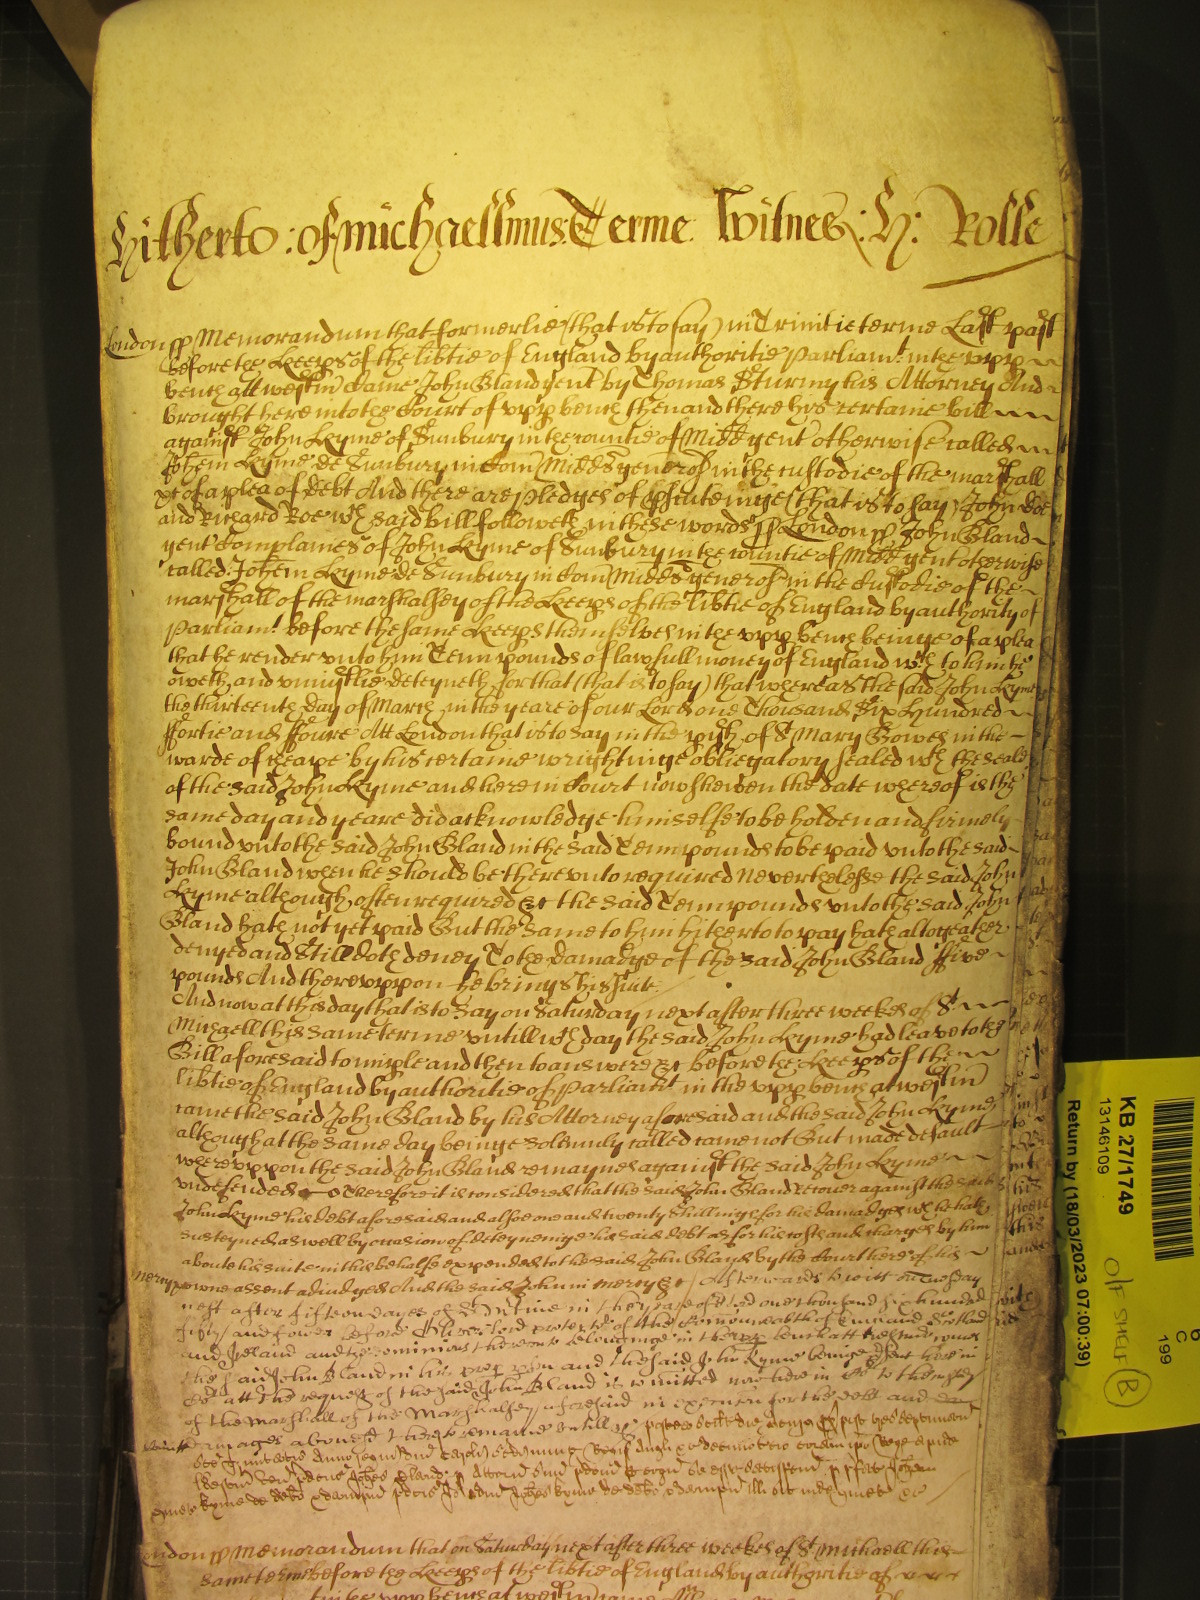 Hitherto : of michaellmus Terme Witnes : H : Rolle
London ss Memorandum that formerlie (that is to say) in Trinitie terme Last past
before the Keeps of the libtie of England by authoritie Parliamt in the vpp
bench att westm Came John Bland gent by Thomas Sturmy his Attorney And
brought here into the Court of vpp bench then and there his certaine bill
against John Kyme of Sunbury in the countie of Midd gent otherwise called
Johem Kyme de Sunbury in Com Midds generos in the custodie of the marshall
xc of a plea of debt And there are pledges of psecuteinge (that is to say) John Doe
and Richard Roe wch said bill followeth in these words ss London ss John Bland
gent Complaines of John Kyme of Sunbury in the countie of Midd gent otherwise
called Johem Kyme de Sunbury in Com Midds generos in the Custodie of the
marshall of the marshalsey of the Keeps of the libtie of England by authority of
Parliamt before the same Keeps themselves in the vpp bench beinge of a plea
that he render vnto him Tenn pounds of lawfull money of England wch to him he
oweth and vniustlie deteyneth for that (that is to say) that whereas the said John Kyme
the thirteenth day of March in the yeare of our Lord one Thousand Six Hundred
ffortie and ffoure Att London that is to say in the pish of St Mary Bowes in the
warde of Cheape by his certaine wrightinge obliegatory sealed wth the seale
of the said John Kyme and here in Court now shewen the date whereof is the
same day and yeare did acknowledge himselfe to be holden and firmely
bound vnto the said John Bland in the said Tenn pounds to be paid vnto the said
John Bland when he should be therevnto required Neverthelesse the said John
Kyme although often required xc the said Tenn pounds vnto the said John
Bland hath not yet paid But the same to him hitherto to pay hath altogeather
denyed and Still doth deney To the damadge of the said John Bland ffive
pounds And therevppon he brings his suite
And now at this day that is to Say on Saturday next after three weekes of St
Michaell this same terme vntill wch day the said John Kyme had leave to the
Bill aforesaid to imple and then to answere xc before the Keeps of the
libtie of England by authoritie of Parliamt in the vpp bench at westm
came the said John Bland by his Attorney aforesaid and the said John Kyme
although at the same day beinge solemnly called came not But made default
wherevppon the said John Bland remaynes against the said John Kyme
vndefended Therefore it is considered that the said John Bland recover against the said
John Kyme his debt aforesaid and alsoe one and twenty shillings for his damadges wch he hath
susteyned as well by occasion of deteyneinge his said debt as for his costs and charges by him
about his suite in this behalfe expended to the said John Bland by the Court here of his
mercy owne assent adiudged And the said John in mercy xc Afterwards to witt on Tuesday
next after fifteen dayes of St Martine in the yeare of or Lord one thousand six hundred
fifty and fower before Oliver Lord protector of the Comonwealth of England Scotland
and Ireland and the dominions thereto belonginge in the upp bench att westmr comes
the said John Bland in his prop pson and the said John Kyme beinge psent here in
Cort att the request of the said John Bland is comitted
of the Marshall of the Marshalsey aforesaid in execucon for the debt and
damages abovesd there to remaine untill xc
London ss Memorandum that on Saturday next after three weekes of St Michaell this
same terme before the Keeps of the libtie of England by authoritie of
in the vpp bench at westm came
KB 27/1749
13146109
Return by (18/03/2023 07:00:39)
Off SHELF
B
C
199